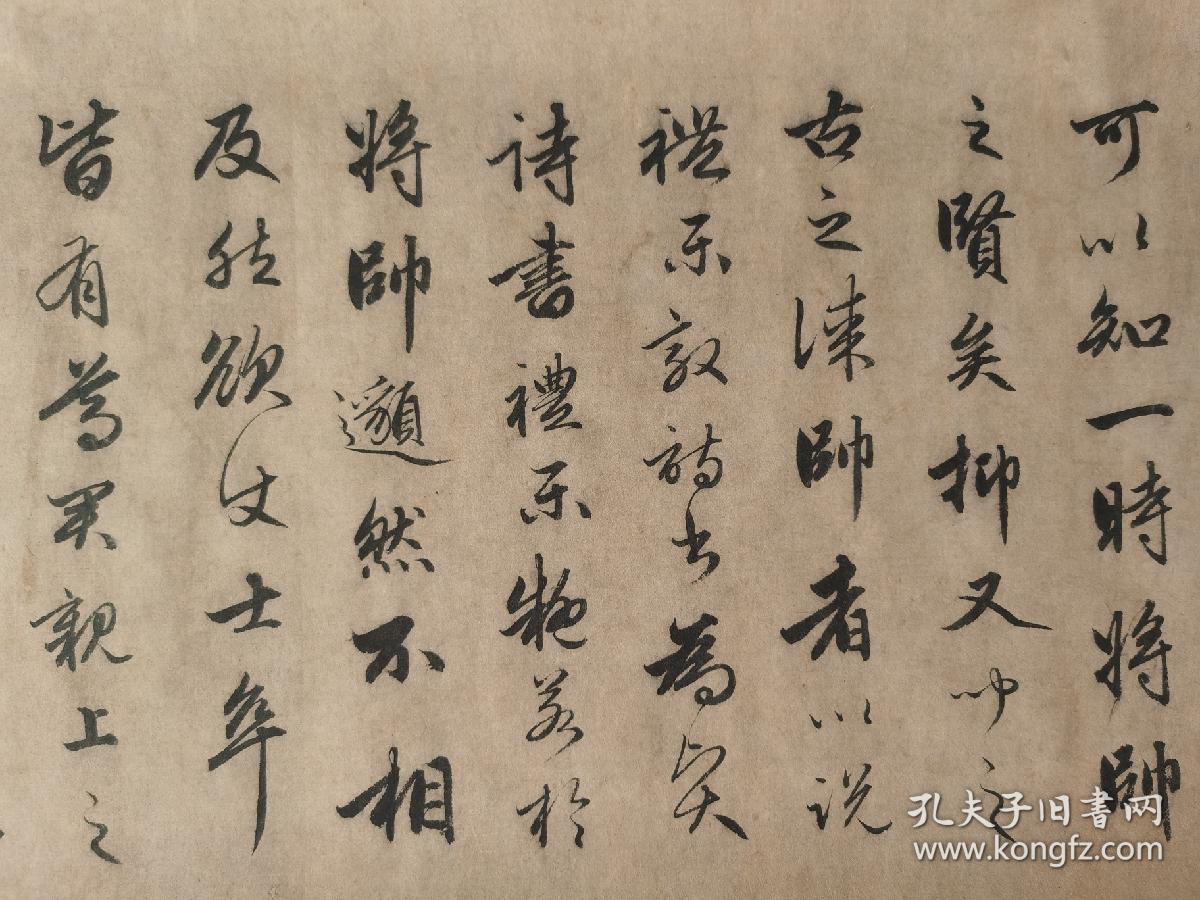 可以知一時將帥
之賢矣抑又聞之
古之謀帥者以説
禮樂敦詩書為
詩書禮樂雖若於
將帥邈然不相
及然欲使士卒
皆有尊君親上之
孔夫子旧书网
www.kongfz.com